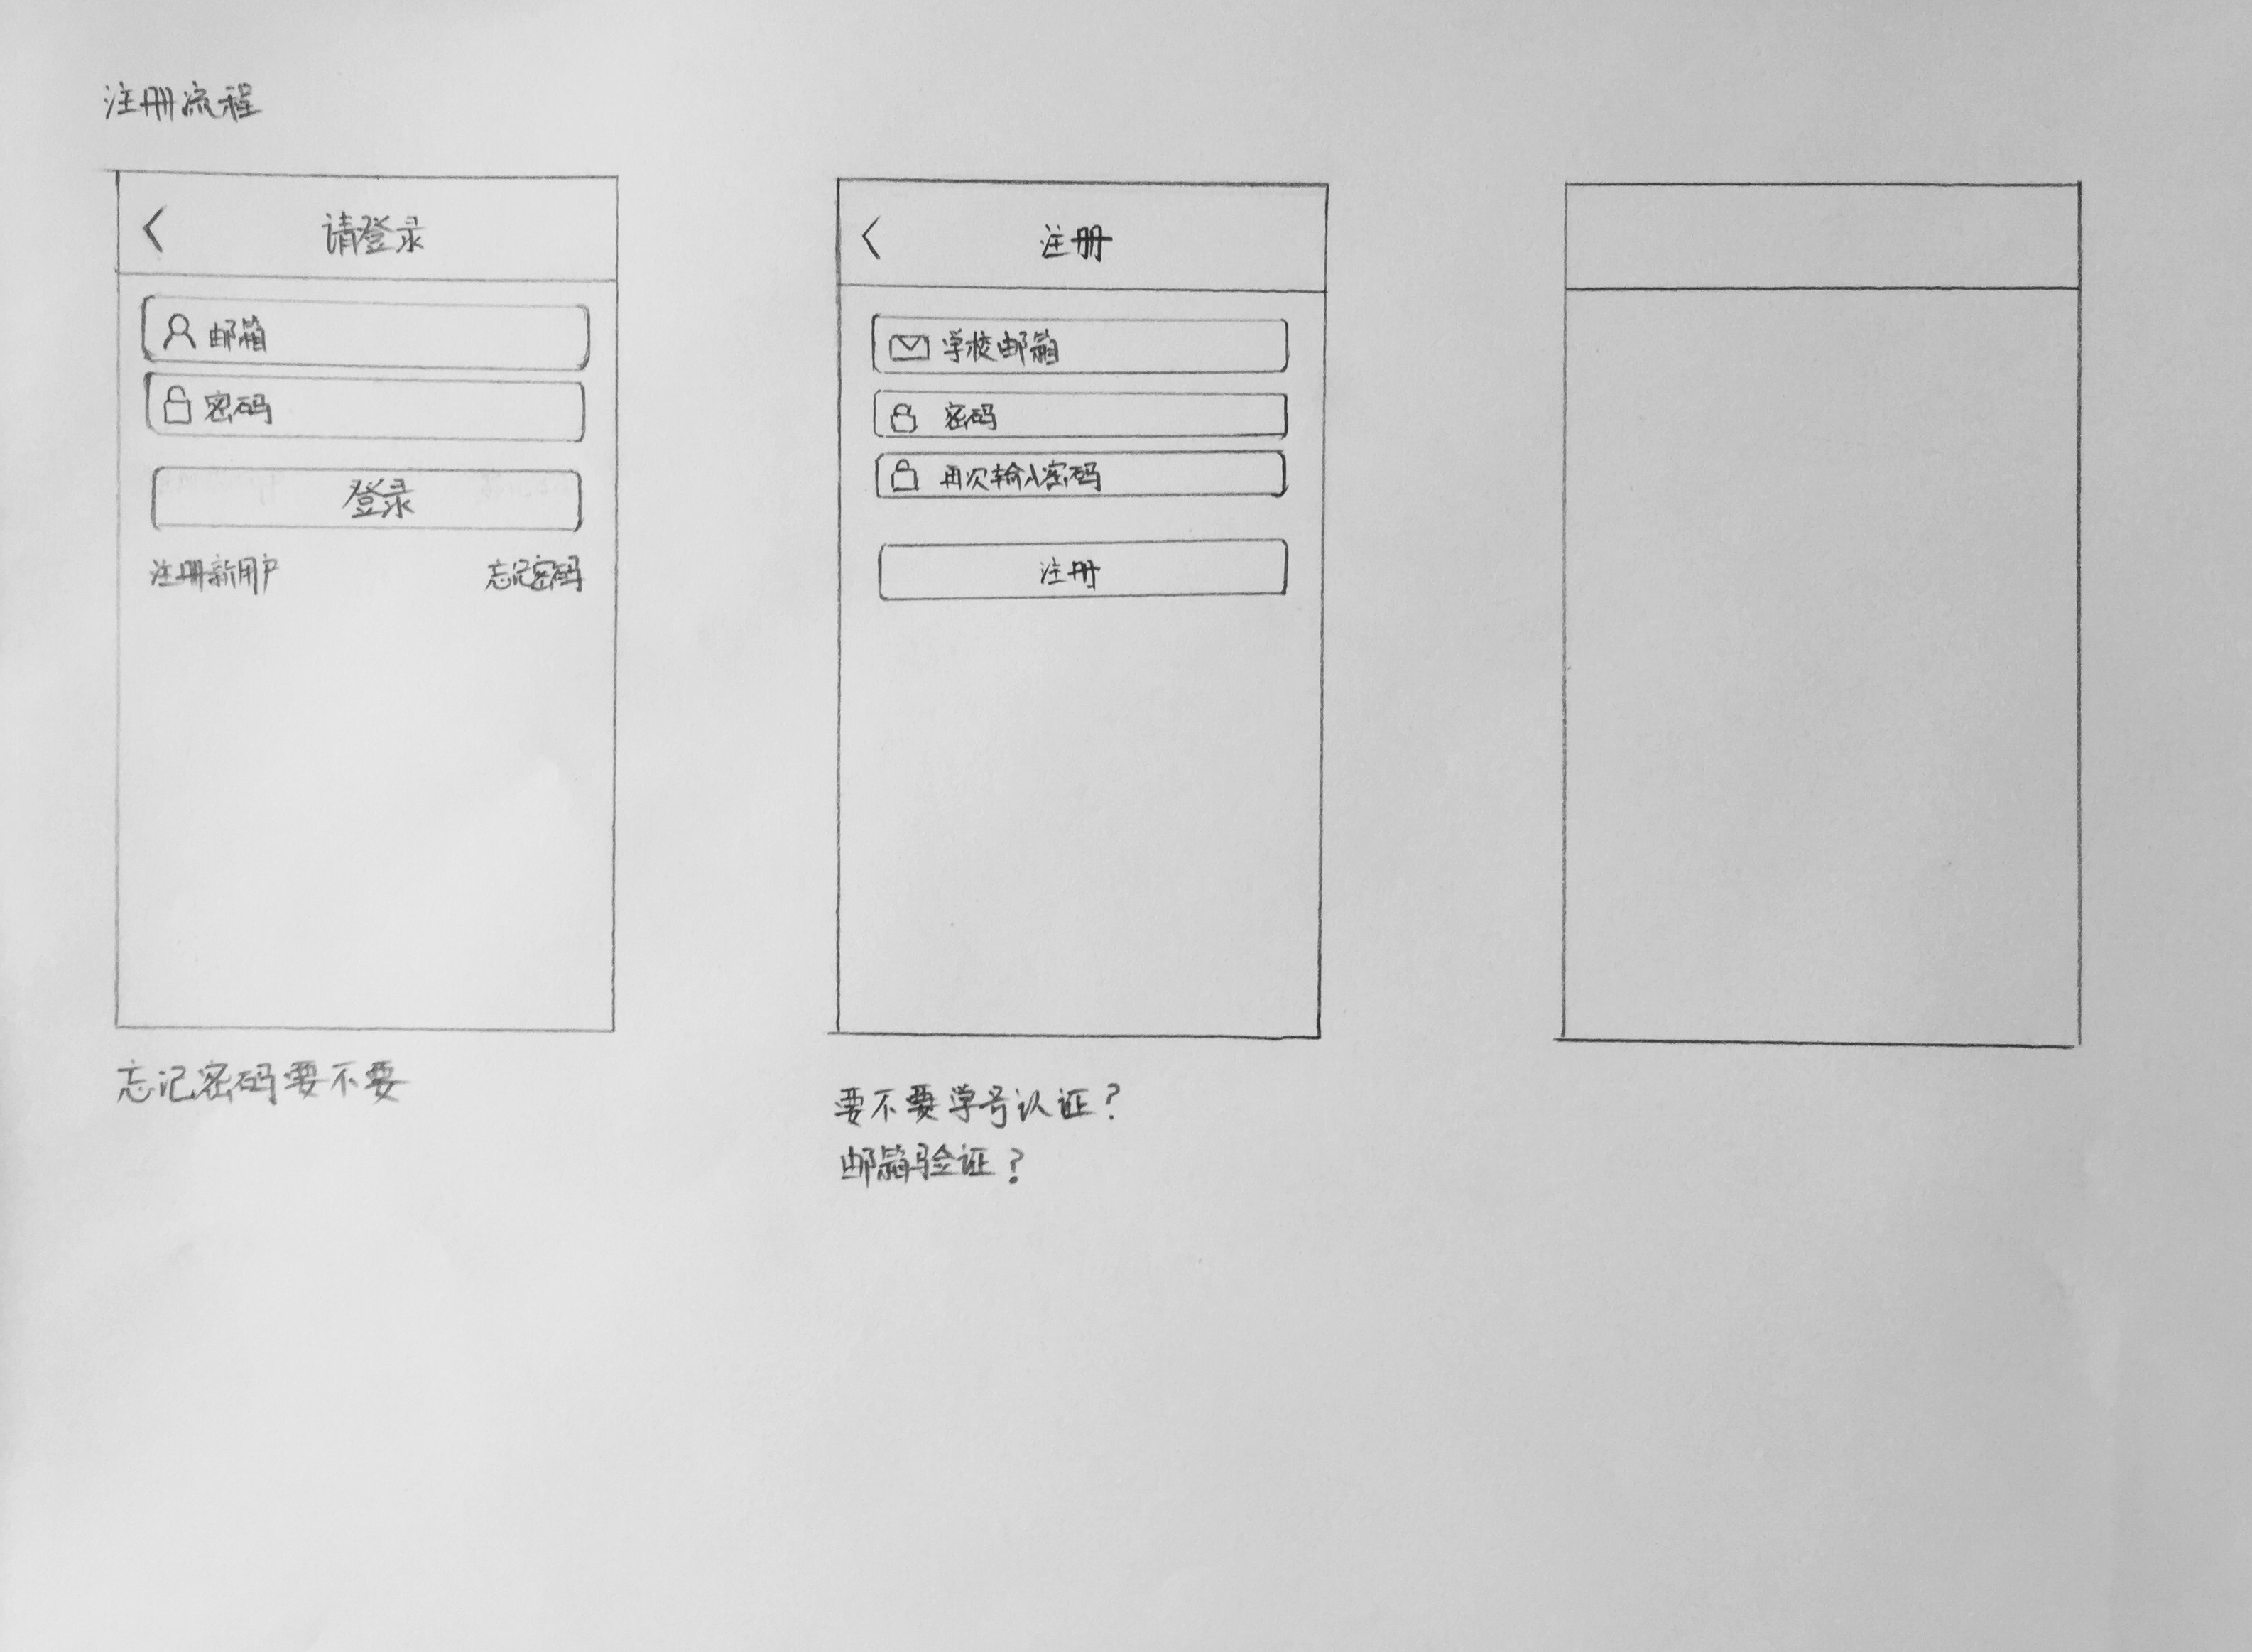 注册流程
请登录
邮箱
密码
登录
注册新用户 忘记密码
忘记密码要不要
注册
学校邮箱
密码
再次输入密码
注册
要不要学号认证？
邮箱验证？